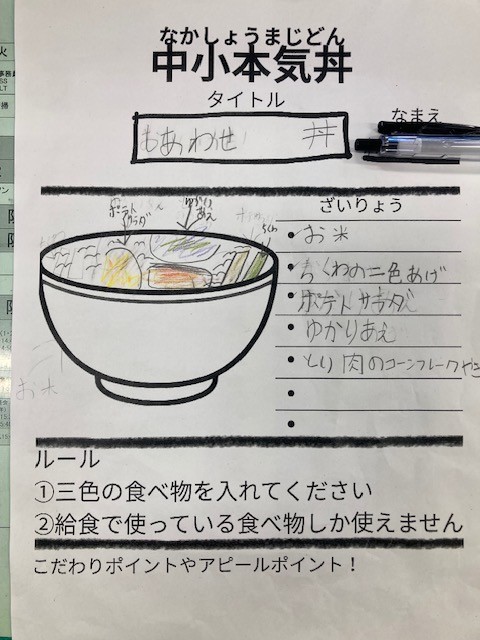 なかしょうまじどん
中小本気丼
タイトル
なまえ
おあわせ 丼
ざいりょう
ポテト
サラダ
ゆかり
あえ
ちくわ
・お米
・ちくわの二色あげ
・ポテトサラダ
・ゆかりあえ
・とり肉のコーンフレークやき
お米
ルール
①三色の食べ物を入れてください
②給食で使っている食べ物しか使えません
こだわりポイントやアピールポイント！